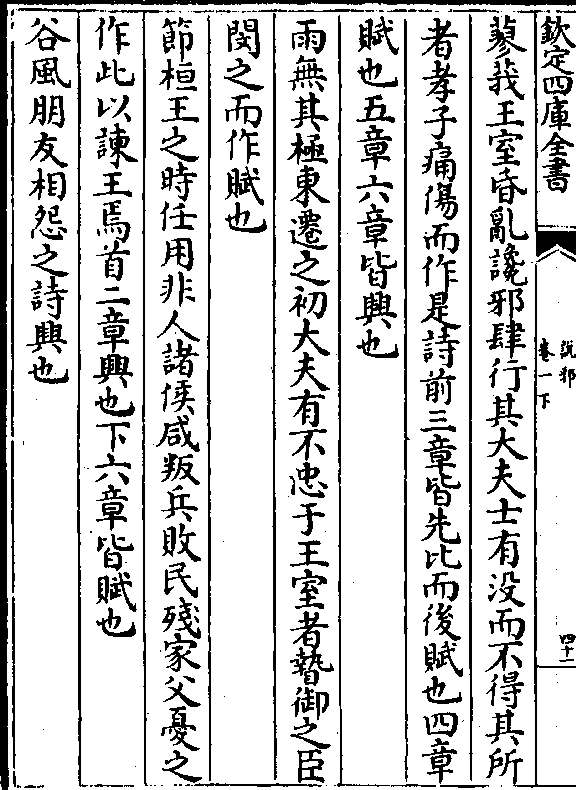 欽定四庫全書
說郛
卷一下
四十二
蓼莪王室昏亂讒邪肆行其大夫士有没而不得其所
者孝子痛傷而作是詩前三章皆先比而後賦也四章
賦也五章六章皆興也
雨無其極東遷之初大夫有不忠于王室者暬御之臣
閔之而作賦也
節桓王之時任用非人諸侯咸叛兵敗民殘家父憂之
作此以諫王焉首二章興也下六章皆賦也
谷風朋友相怨之詩興也